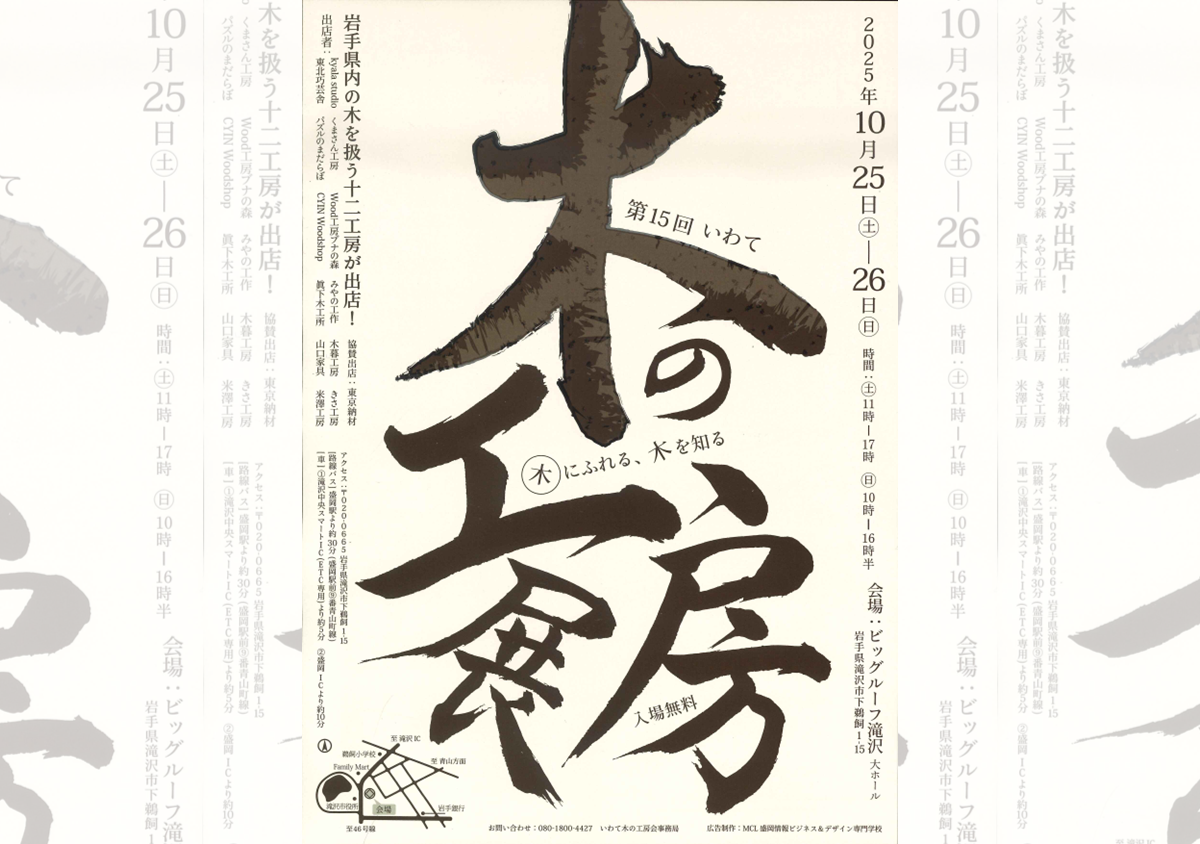 2025年10月25日㊏―26日㊐
時間:㊏11時―17時 ㊐10時―16時半
会場:ビッグルーフ滝沢 大ホール
岩手県滝沢市下鵜飼1-15
第15回 いわて
木の工房展
木にふれる、木を知る
入場無料
岩手県内の木を扱う十二工房が出店!
協賛出店:東京納材
出店者: kyala studio くまさん工房 Wood工房ブナの森 みやの工作 木暮工房 きさ工房
東北巧芸舎 パズルのまだらば CYIN Woodshop 眞下木工所 山口家具 米澤工房
アクセス:〒020-0665 岩手県滝沢市下鵜飼1-15
[路線バス]盛岡駅より約30分(盛岡駅前⑨番青山町線)
[車]①滝沢中央スマートIC(ETC専用)より約5分 ②盛岡ICより約10分
至 滝沢IC
鵜飼小学校
至 青山方面
Family Mart
滝沢市役所
会場
岩手銀行
至46号線
お問い合わせ:080-1800-4427 いわて木の工房会事務局
広告制作:MCL盛岡情報ビジネス&デザイン専門学校